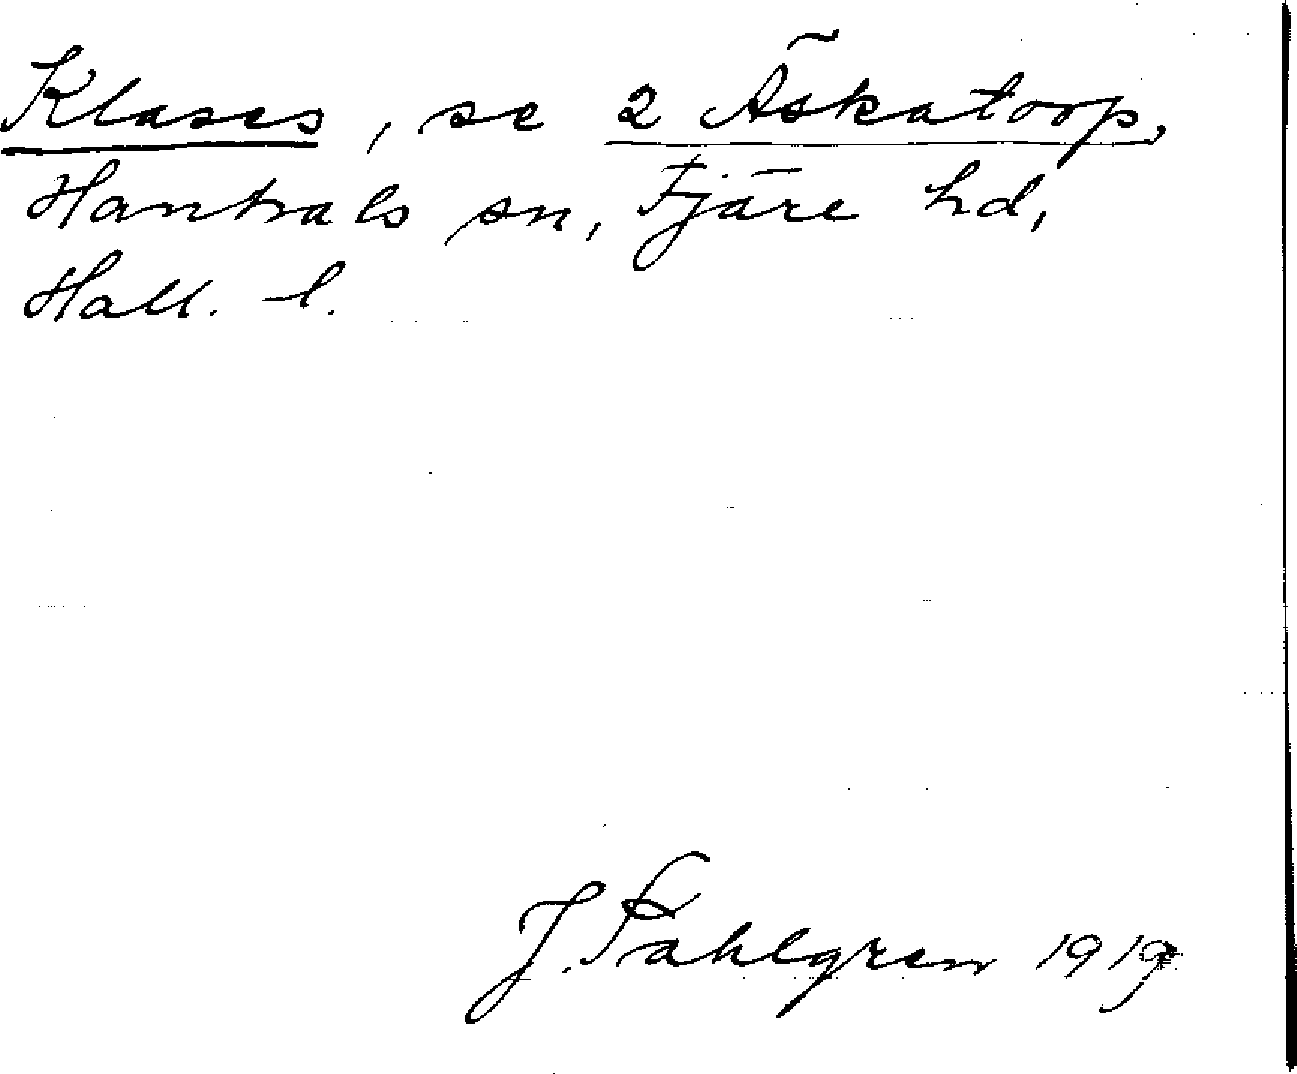 Klases, se 2 Äskatorp,
Hanhals sn, Fjäre hd,
Hall. l.
J. Sahlgren 1919